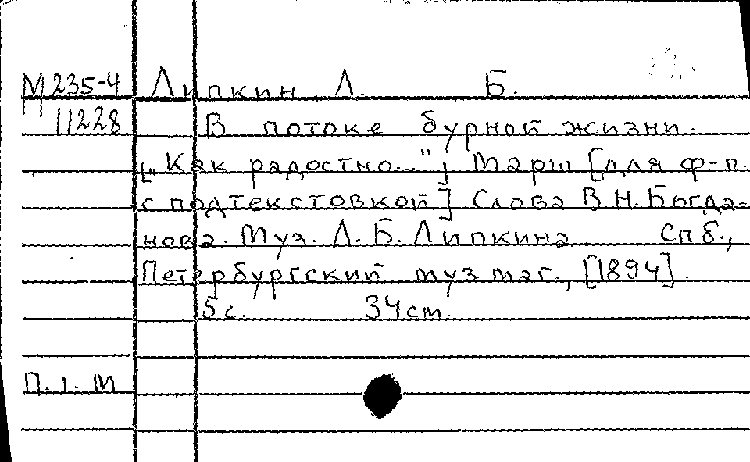 М 235-4 Липкин Л. Б.
11228 В потоке бурной жизни.
[„Как радостно..."] Марш [для ф-п.
с подтекстовкой] Слова В.Н. Богда-
нова. Муз. Л.Б. Липкина Спб.,
Петербургский муз маг., [1894]
5 с. 34 см.
П. 1. М